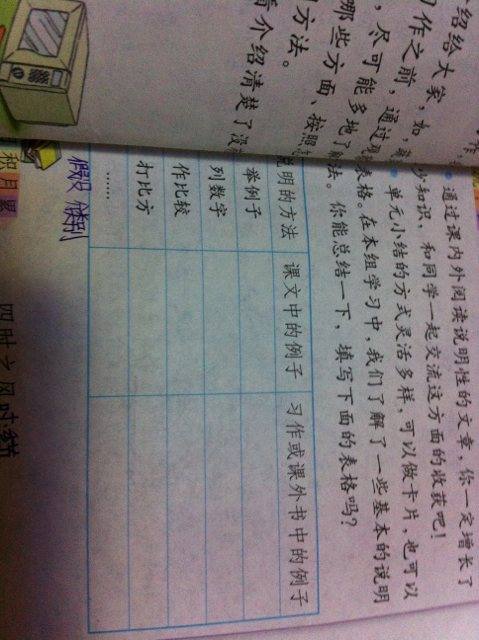 绍给大家,如,
作之前,通过
,尽可能多地了
哪些方面、按照
方法。
看介绍清楚了没
通过课内外阅读说明性的文章,你一定增长了
少知识,和同学一起交流这方面的收获吧!
单元小结的方式灵活多样,可以做卡片,也可以
表格。在本组学习中,我们了解了一些基本的说明
法。你能总结一下,填写下面的表格吗?
说明的方法 课文中的例子 习作或课外书中的例子
举例子
列数字
作比较
打比方
……
和月
四时之风